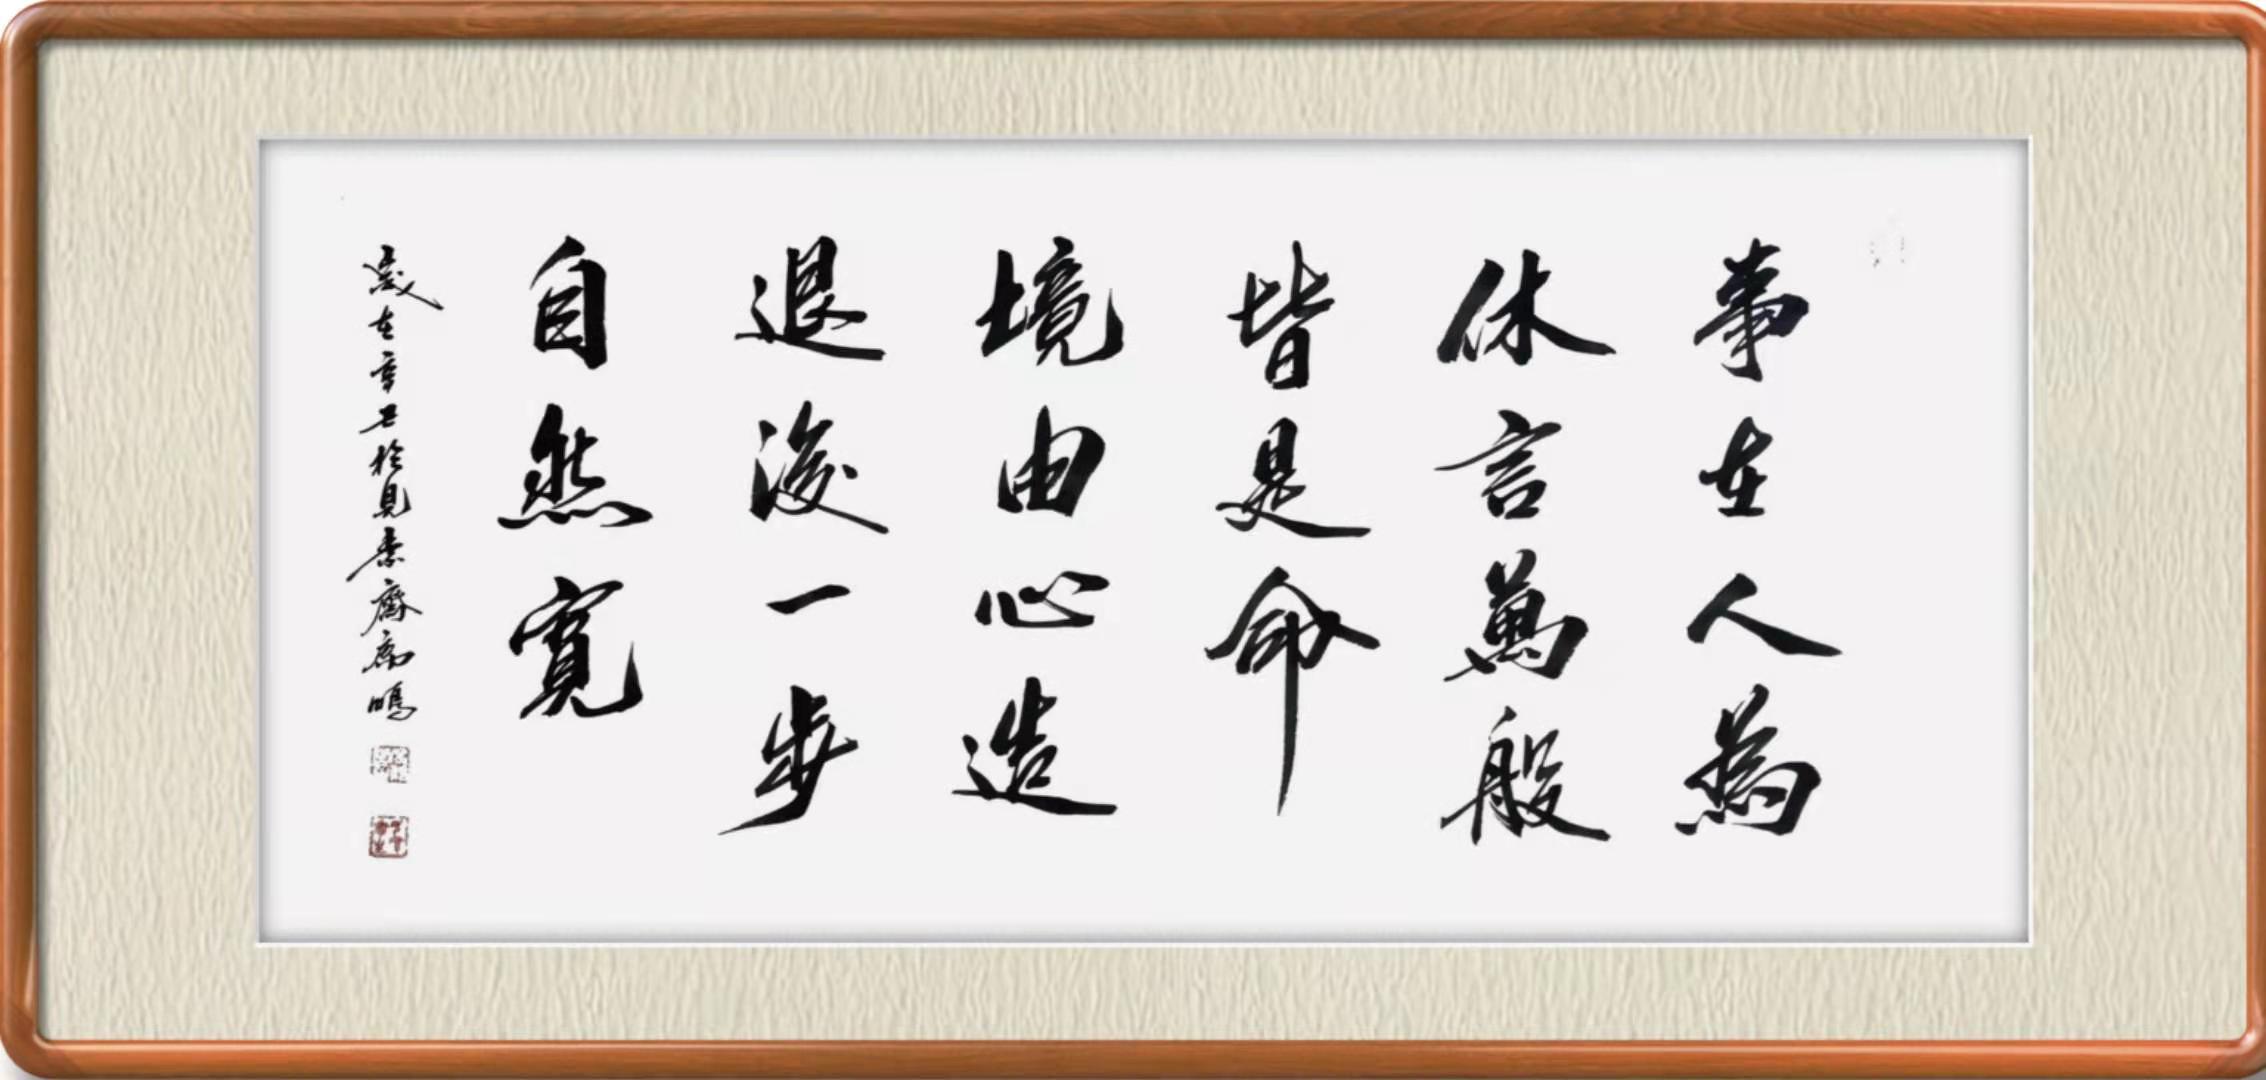 事在人為
休言萬般
皆是命
境由心造
退後一步
自然寬
歲在辛丑於見素齋高鳴